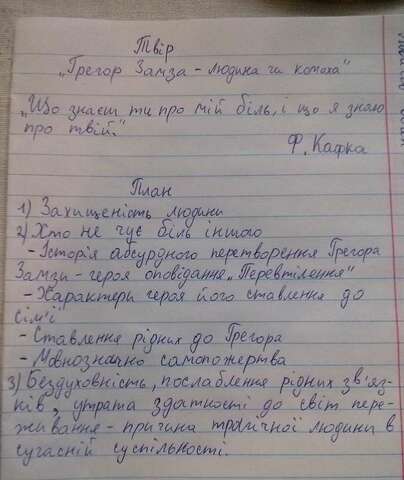 Твір
"Грегор Замза - людина чи комаха"
"Що знаєш ти про мій біль, і що я знаю
про твій."
Ф. Кафка
План
1) Захищеність людини
2) Хто не чує біль іншого
- Історія абсурдного перетворення Грегора
Замзи - героя оповідання "Перевтілення"
- Характери героя його ставлення до
сім'ї
- Ставлення рідних до Грегора
- Мовнозначно самопожертва
3) Бездуховність, послаблення рідних зв'яз-
ків, утрата здатності до світ пере-
живання - причина трагічної людини в
сучасній суспільності.